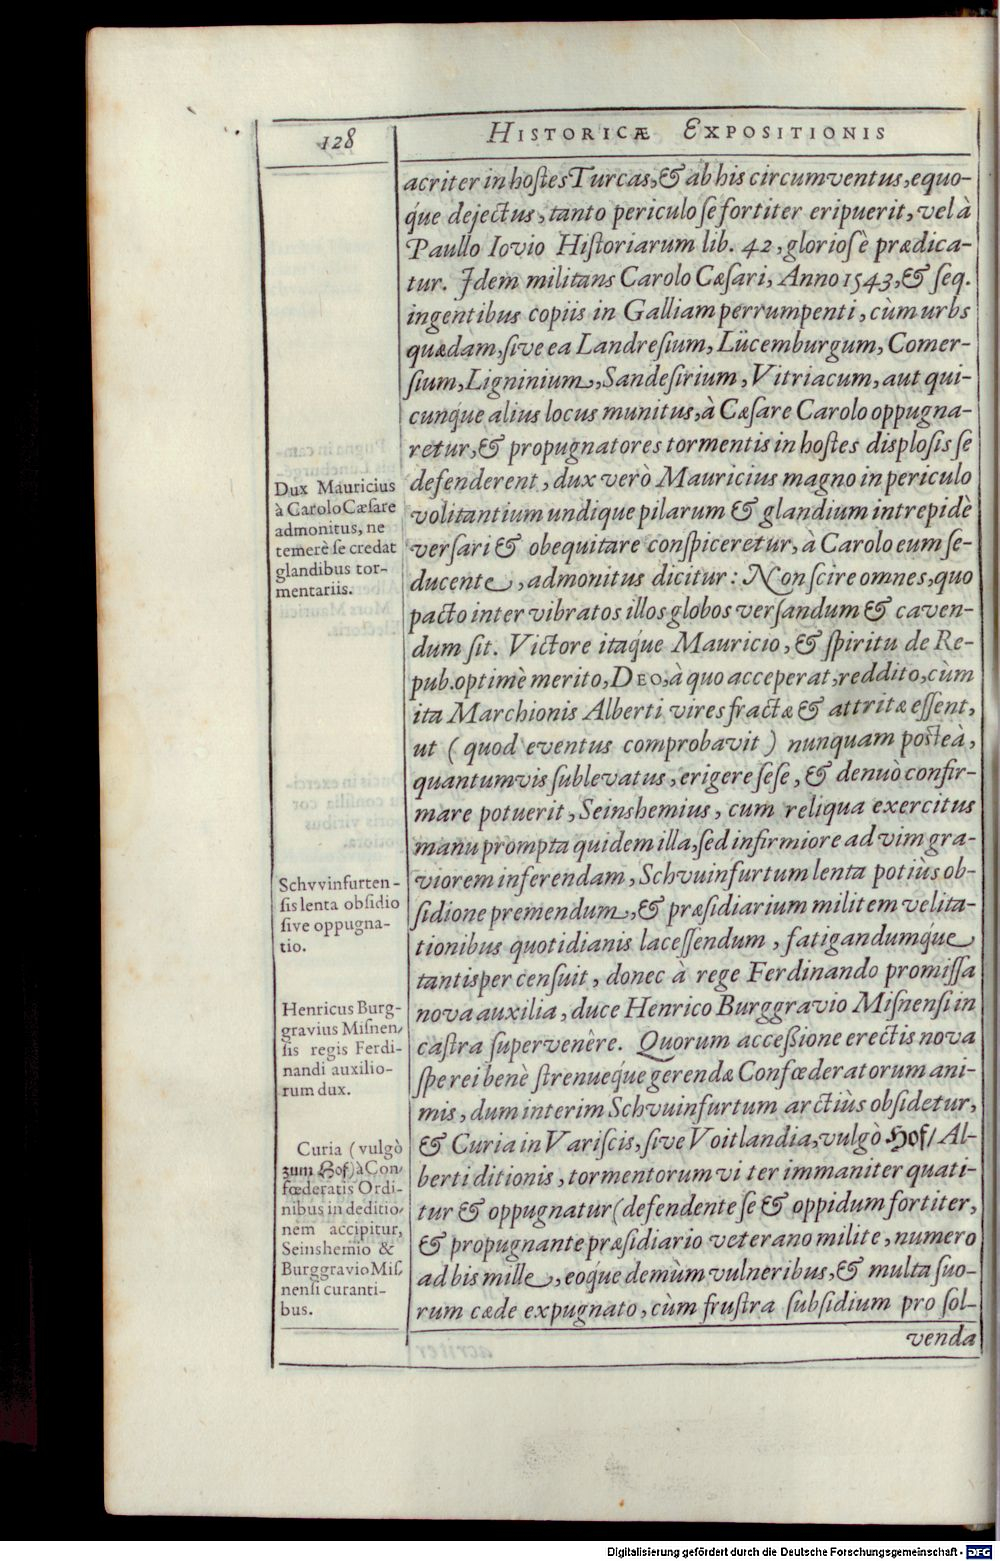 128
HISTORICÆ EXPOSITIONIS
acriter in hostes Turcas, & ab his circumventus, equo-
q́ue dejectus, tanto periculo se fortiter eripuerit, vel à
Paullo Iovio Historiarum lib. 42, gloriosè prædica-
tur. Idem militans Carolo Cæsari, Anno 1543, & seq.
ingentibus copiis in Galliam perrumpenti, cùm urbs
quædam, sive ea Landresium, Lücemburgum, Comer-
sium, Ligninium, Sandesirium, Vitriacum, aut qui-
cunq́ue alius locus munitus, à Cæsare Carolo oppugna-
retur, & propugnatores tormentis in hostes displosis se
defenderent, dux verò Mauricius magno in periculo
volitantium undique pilarum & glandium intrepidè
versari & obequitare conspiceretur, à Carolo eum se-
ducente, admonitus dicitur: Non scire omnes, quo
pacto inter vibratos illos globos versandum & caven-
dum sit. Victore itaq́ue Mauricio, & spiritu de Re-
pub. optimè merito, DEO, à quo acceperat, reddito, cùm
ita Marchionis Alberti vires fractæ & attritæ essent,
ut ( quod eventus comprobavit ) nunquam posteà,
quantumvis sublevatus, erigere sese, & denuò confir-
mare potuerit, Seinshemius, cum reliqua exercitus
manu prompta quidem illa, sed infirmiore ad vim gra-
viorem inferendam, Schvuinfurtum lenta potiùs ob-
sidione premendum, & præsidiarium militem velita-
tionibus quotidianis lacessendum, fatigandumq́ue
tantisper censuit, donec à rege Ferdinando promissa
nova auxilia, duce Henrico Burggravio Misnensi in
castra supervenêre. Quorum accessione erectis nova
spe rei benè strenueq́ue gerendæ Confœderatorum ani-
mis, dum interim Schvuinfurtum arctiùs obsidetur,
& Curia in Variscis, sive Voitlandia, vulgò Hof/ Al-
berti ditionis, tormentorum vi ter immaniter quati-
tur & oppugnatur (defendente se & oppidum fortiter,
& propugnante præsidiario veterano milite, numero
ad bis mille, eoq́ue demùm vulneribus, & multa suo-
rum cæde expugnato, cùm frustra subsidium pro sol-
venda
Dux Mauricius
à Carolo Cæsare
admonitus, ne
temerè se credat
glandibus tor-
mentariis.
Schvvinfurten-
sis lenta obsidio
sive oppugna-
tio.
Henricus Burg-
gravius Misnen-
sis regis Ferdi-
nandi auxilio-
rum dux.
Curia (vulgò
zum Hof) à Con-
fœderatis Ordi-
nibus in deditio-
nem accipitur,
Seinshemio &
Burggravio Mis-
nensi curanti-
bus.
Digitalisierung gefördert durch die Deutsche Forschungsgemeinschaft - DFG